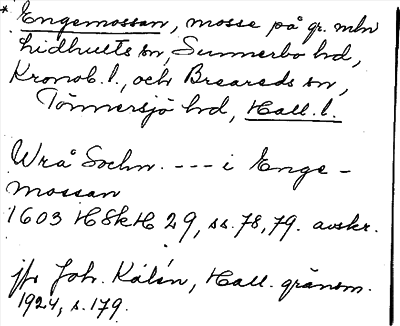 * Engemossan, mosse på gr. mln
Lidhults sn, Sunnerbo hd,
Kronob. l., och Breareds sn,
Tönnersjö hd, Hall. l.
Wrå Sochn. --- i Enge-
mossan
1603 HSkH 29, ss. 78, 79. avskr.
jfr Joh. Kalén, Hall. gränsm.
1924, s. 179.